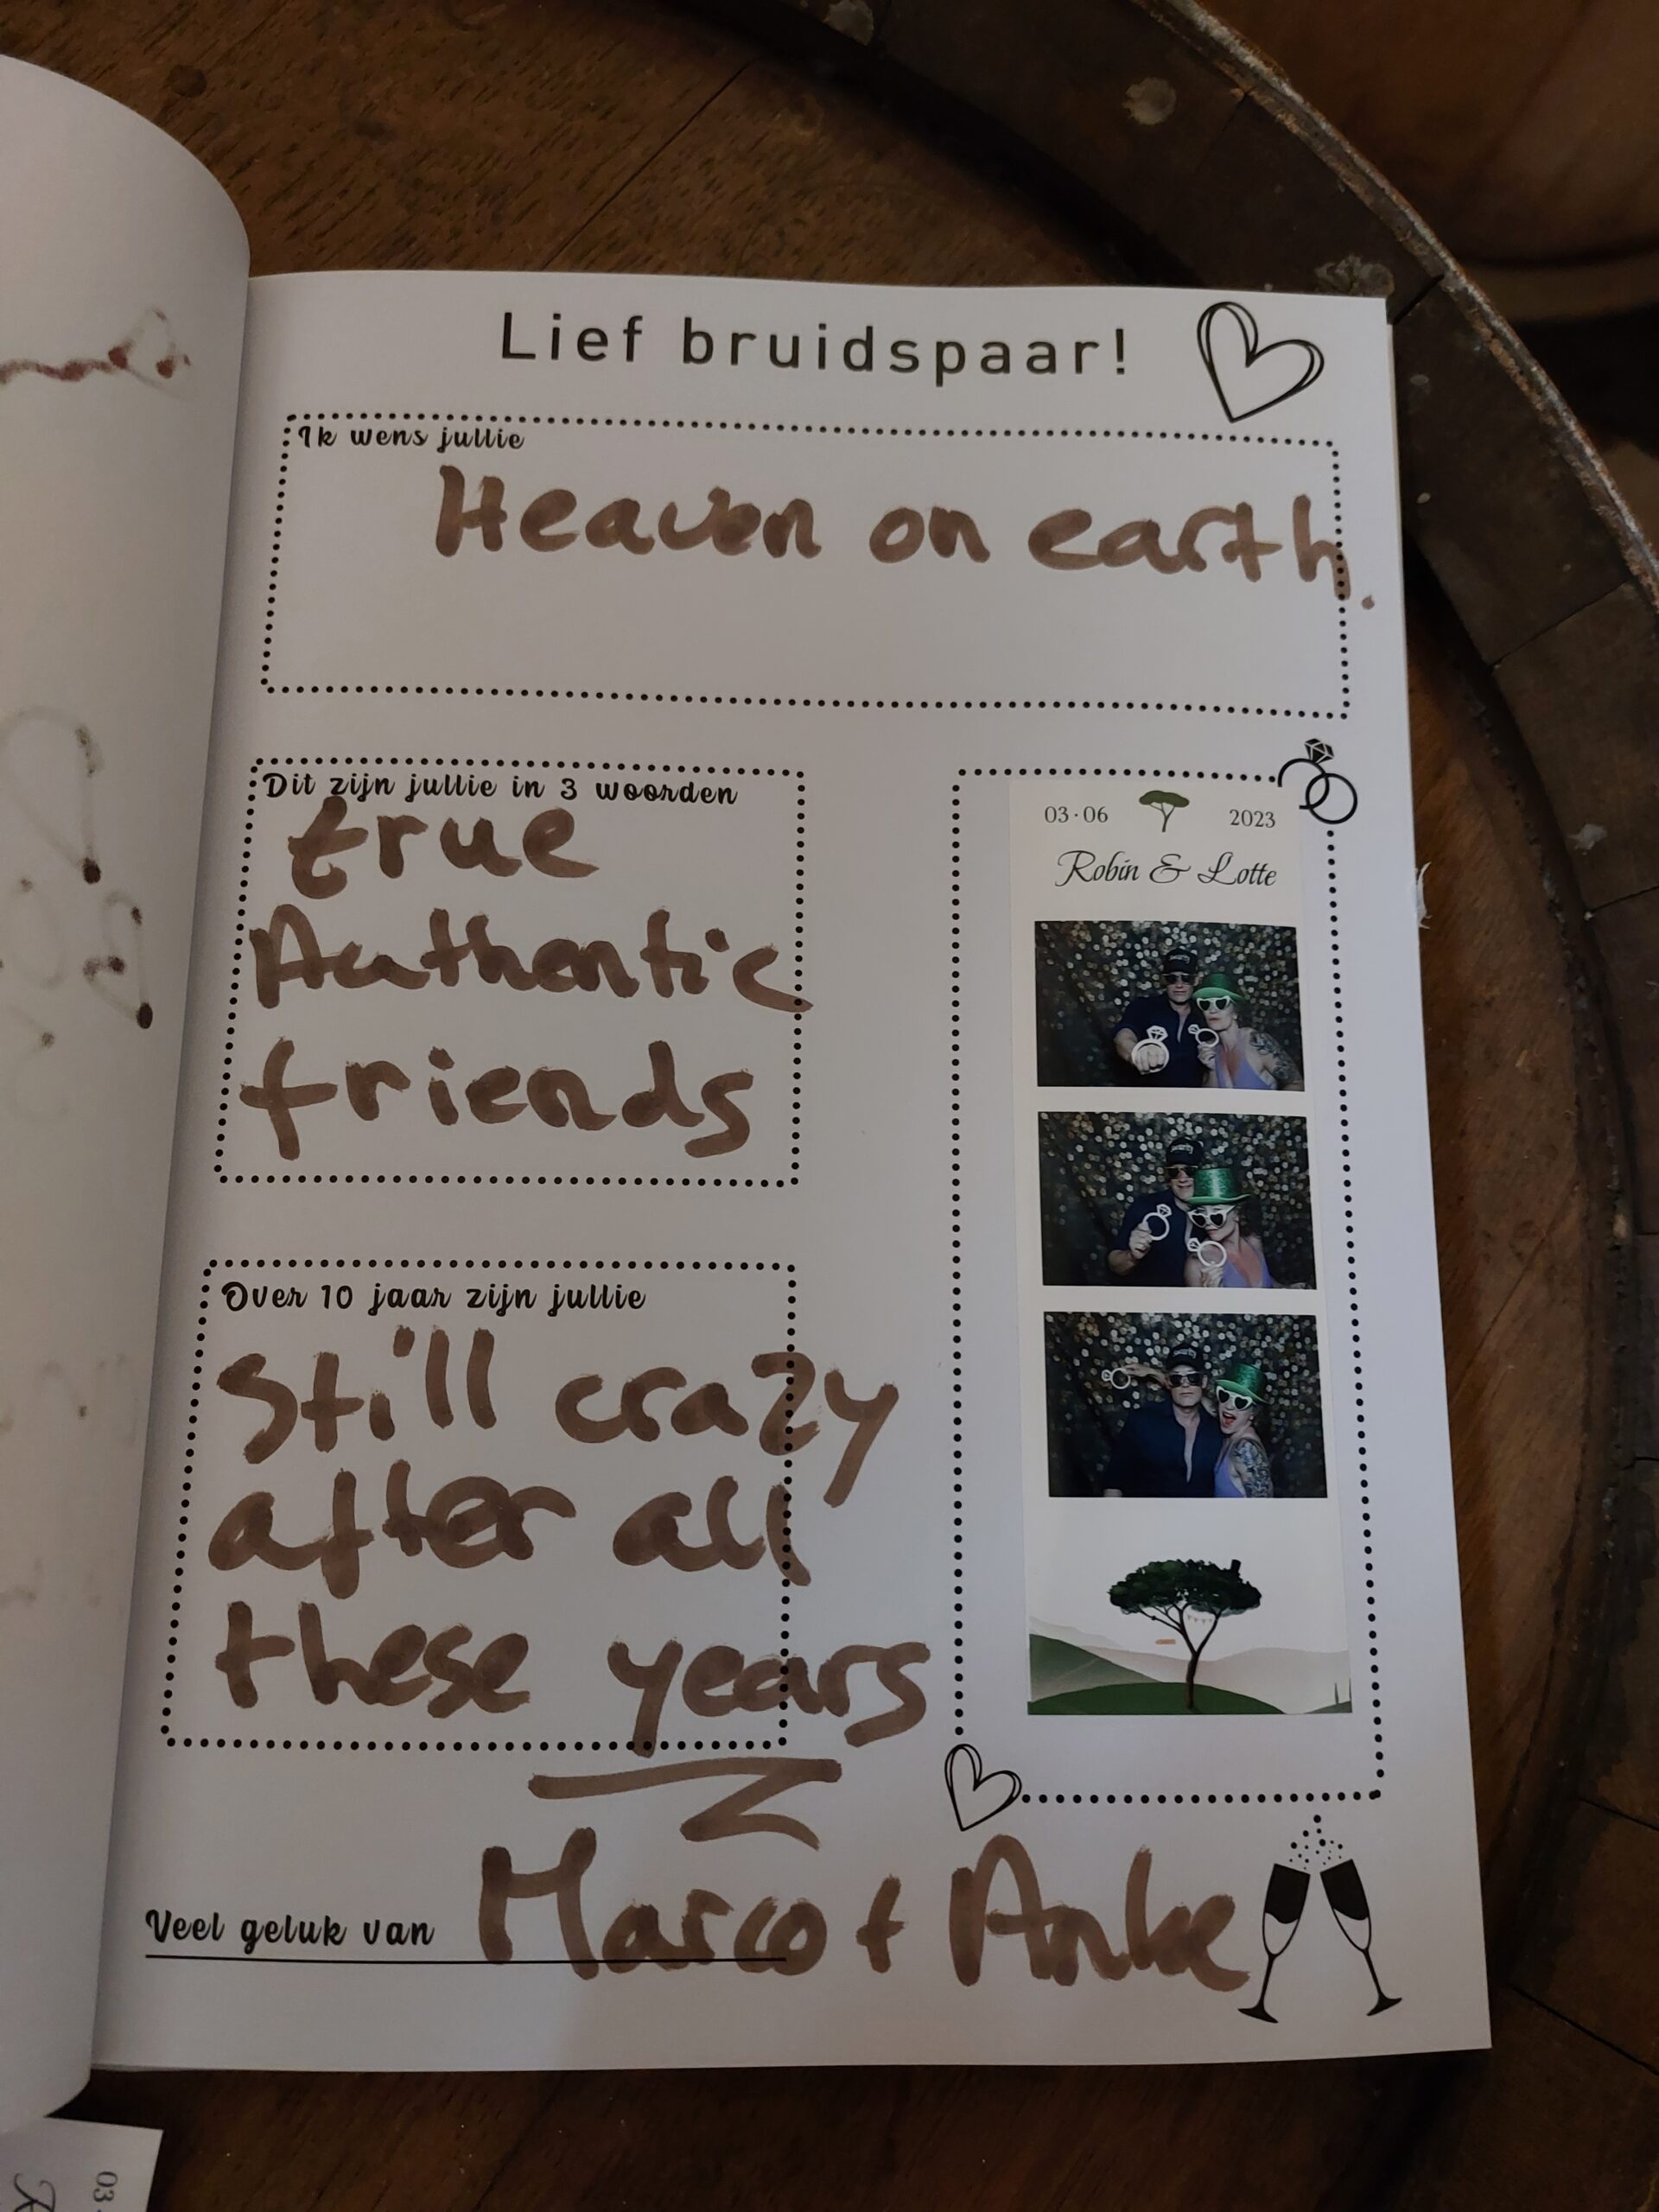 Lief bruidspaar!
Ik wens jullie
Heaven on earth.
Dit zijn jullie in 3 woorden
true
Authentic
friends
Over 10 jaar zijn jullie
Still crazy
after all
these years
Veel geluk van Marco + Anke
03·06 2023
Robin & Lotte
03